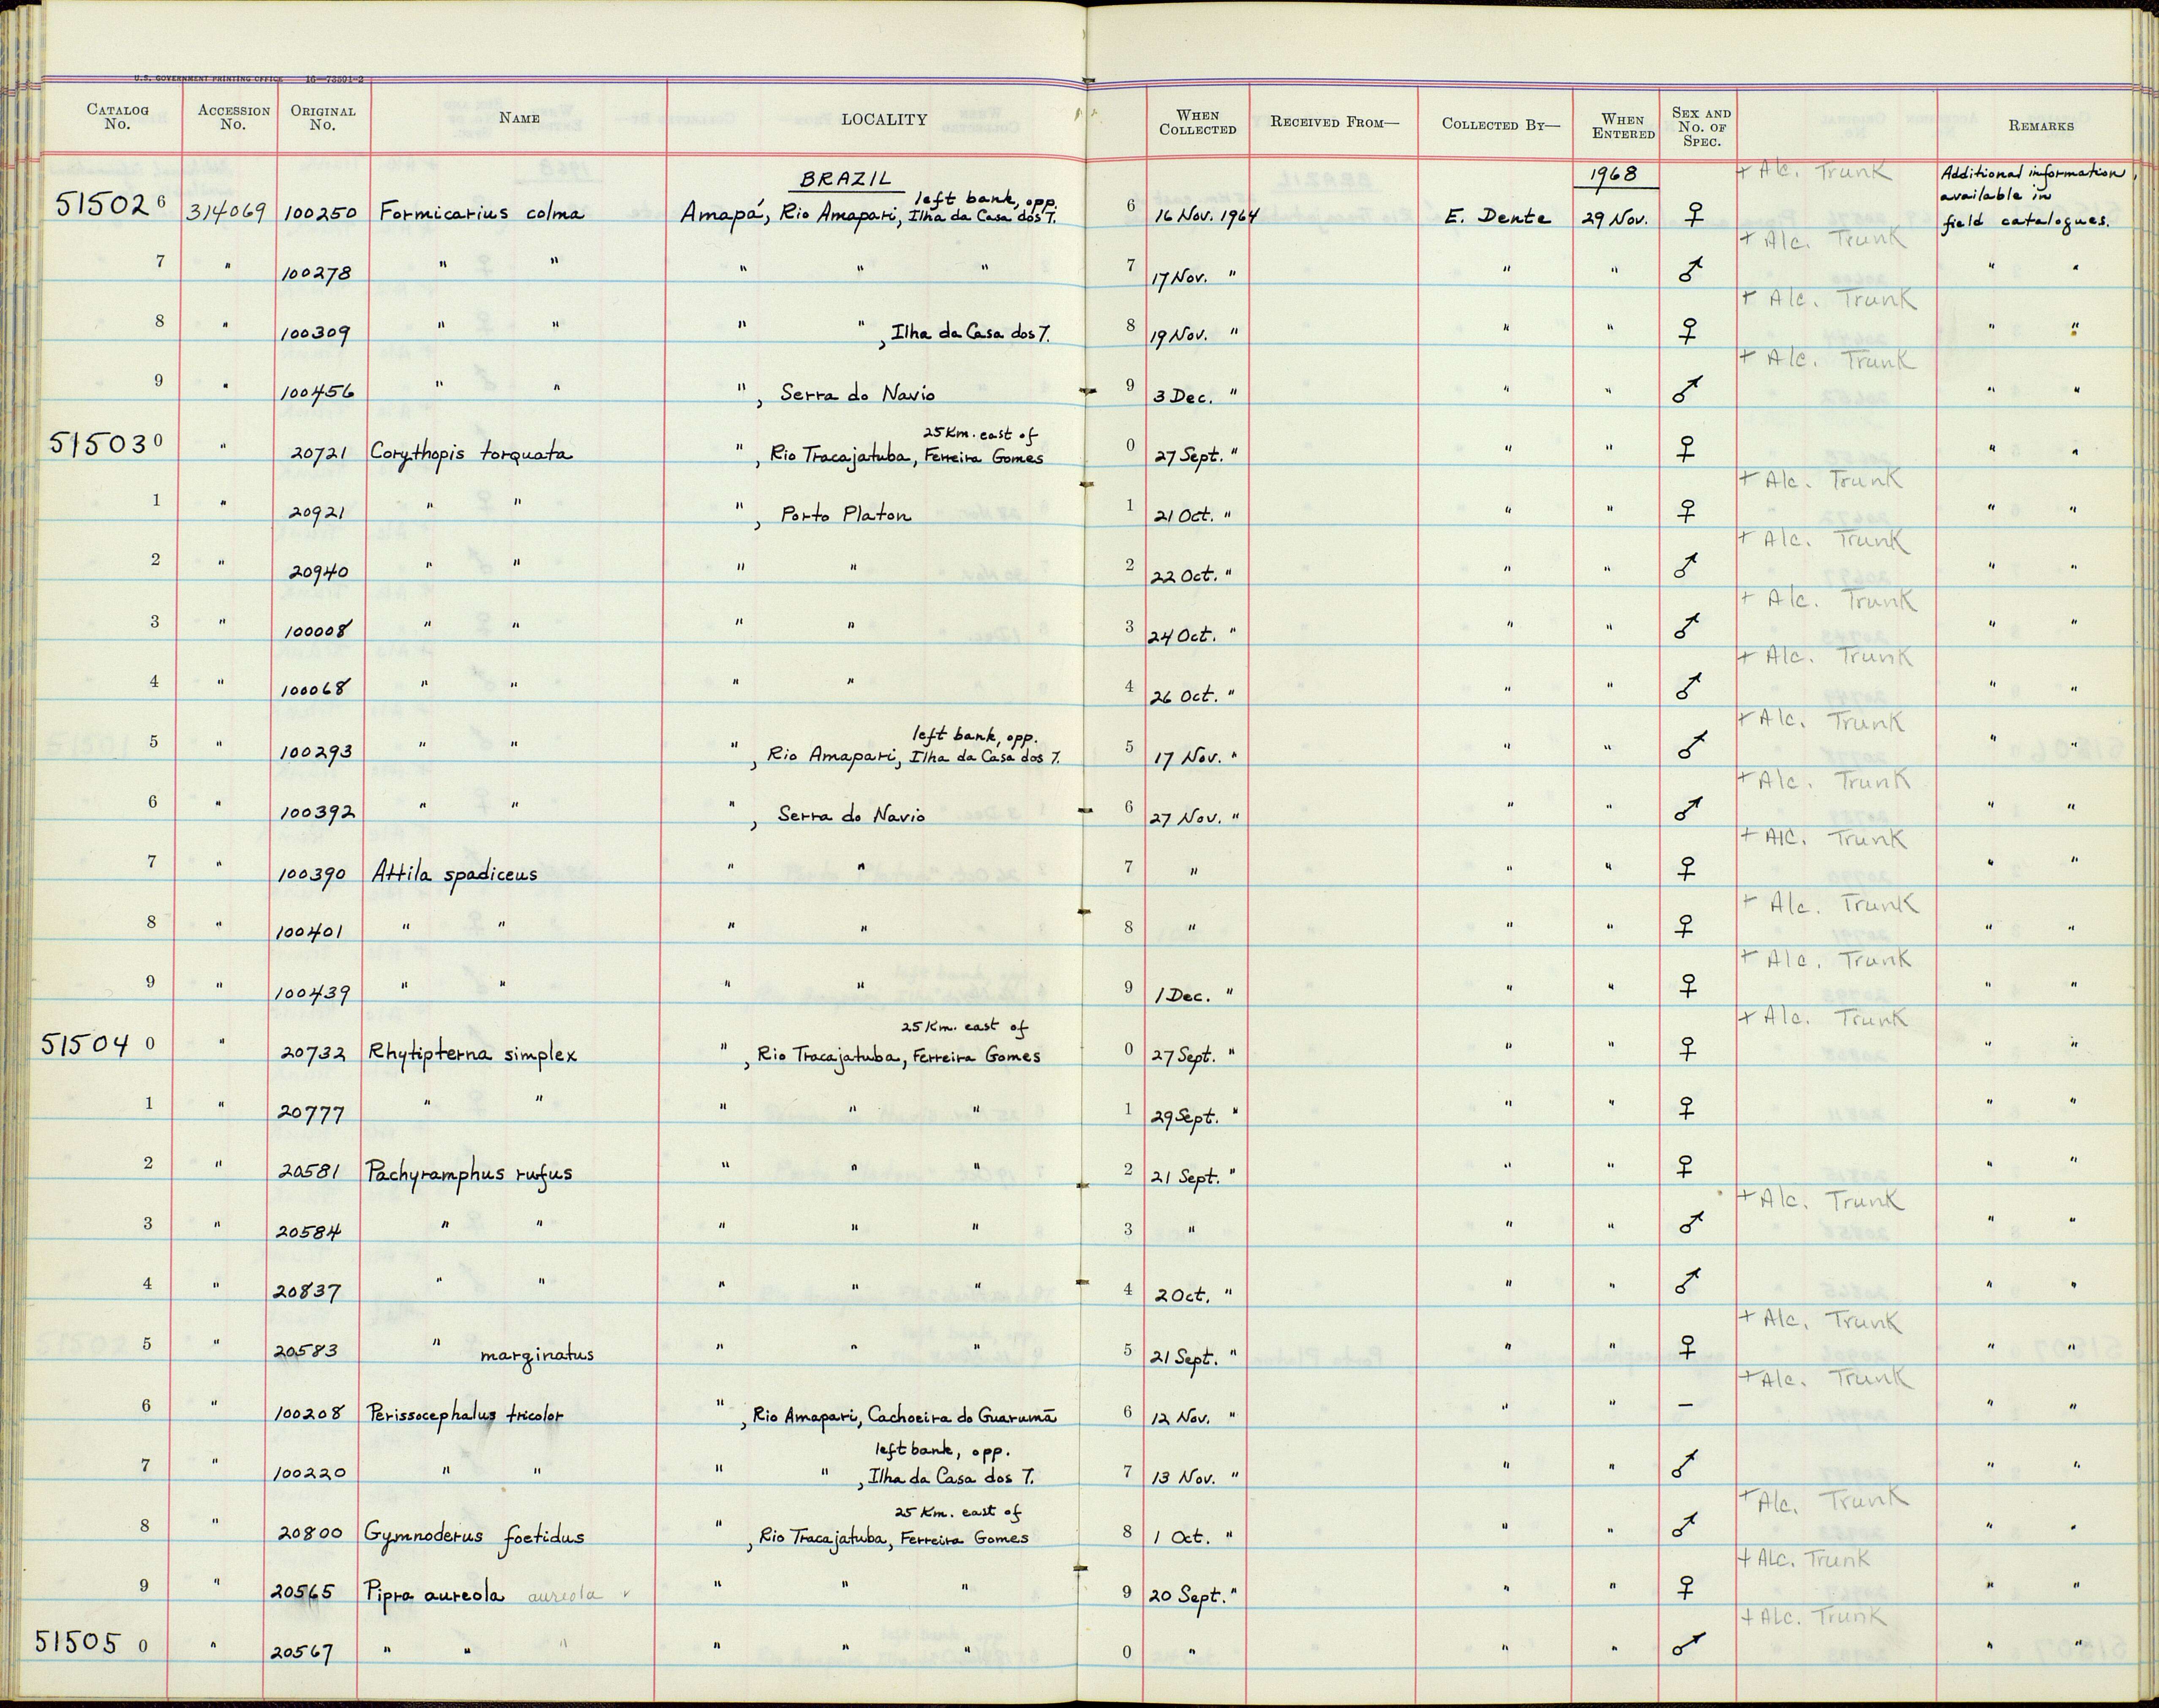 U.S. GOVERNMENT PRINTING OFFICE 16—73591-2
CATALOG No. ACCESSION No. ORIGINAL No. NAME LOCALITY WHEN COLLECTED RECEIVED FROM— COLLECTED BY— WHEN ENTERED SEX AND No. OF SPEC. REMARKS
BRAZIL 1968 + Alc. Trunk Additional information
left bank, opp. available in
515026 314069 100250 Formicarius colma Amapá, Rio Amapari, Ilha da Casa dos T. 6 16 Nov. 1964 E. Dente 29 Nov. ♀ field catalogues.
+ Alc. Trunk
7 " 100278 " " " " " 7 17 Nov. " " " ♂ " "
+ Alc. Trunk
8 " 100309 " " " " , Ilha da Casa dos T. 8 19 Nov. " " " ♀ " "
+ Alc. Trunk
9 " 100456 " " " , Serra do Navio 9 3 Dec. " " " ♂ " "
25 Km. east of
515030 " 20721 Corythopis torquata " , Rio Tracajatuba, Ferreira Gomes 0 27 Sept. " " " ♀ " "
+ Alc. Trunk
1 " 20921 " " " , Porto Platon 1 21 Oct. " " " ♀ " "
+ Alc. Trunk
2 " 20940 " " " " 2 22 Oct. " " " ♂ " "
+ Alc. Trunk
3 " 100008 " " " " 3 24 Oct. " " " ♂ " "
+ Alc. Trunk
4 " 100068 " " " " 4 26 Oct. " " " ♂ " "
left bank, opp. + Alc. Trunk
5 " 100293 " " " , Rio Amapari, Ilha da Casa dos T. 5 17 Nov. " " " ♂ " "
+ Alc. Trunk
6 " 100392 " " " , Serra do Navio 6 27 Nov. " " " ♂ " "
+ Alc. Trunk
7 " 100390 Attila spadiceus " " 7 " " " ♀ " "
+ Alc. Trunk
8 " 100401 " " " " 8 " " " ♀ " "
+ Alc. Trunk
9 " 100439 " " " " 9 1 Dec. " " " ♀ " "
25 Km. east of + Alc. Trunk
51504 0 " 20732 Rhytipterna simplex " , Rio Tracajatuba, Ferreira Gomes 0 27 Sept. " " " ♀ " "
1 " 20777 " " " " " 1 29 Sept. " " " ♀ " "
2 " 20581 Pachyramphus rufus " " " 2 21 Sept. " " " ♀ " "
+ Alc. Trunk
3 " 20584 " " " " " 3 " " " ♂ " "
4 " 20837 " " " " " 4 2 Oct. " " " ♂ " "
+ Alc. Trunk
5 " 20583 " marginatus " " " 5 21 Sept. " " " ♀ " "
+ Alc. Trunk
6 " 100208 Perissocephalus tricolor " , Rio Amapari, Cachoeira do Guarumã 6 12 Nov. " " " – " "
left bank, opp.
7 " 100220 " " " " , Ilha da Casa dos T. 7 13 Nov. " " " ♂ " "
25 Km. east of + Alc. Trunk
8 " 20800 Gymnoderus foetidus " , Rio Tracajatuba, Ferreira Gomes 8 1 Oct. " " " ♂ " "
+ Alc. Trunk
9 " 20565 Pipra aureola aureola ✓ " " " 9 20 Sept. " " " ♀ " "
+ Alc. Trunk
51505 0 " 20567 " " " " " " 0 " " " ♂ " "